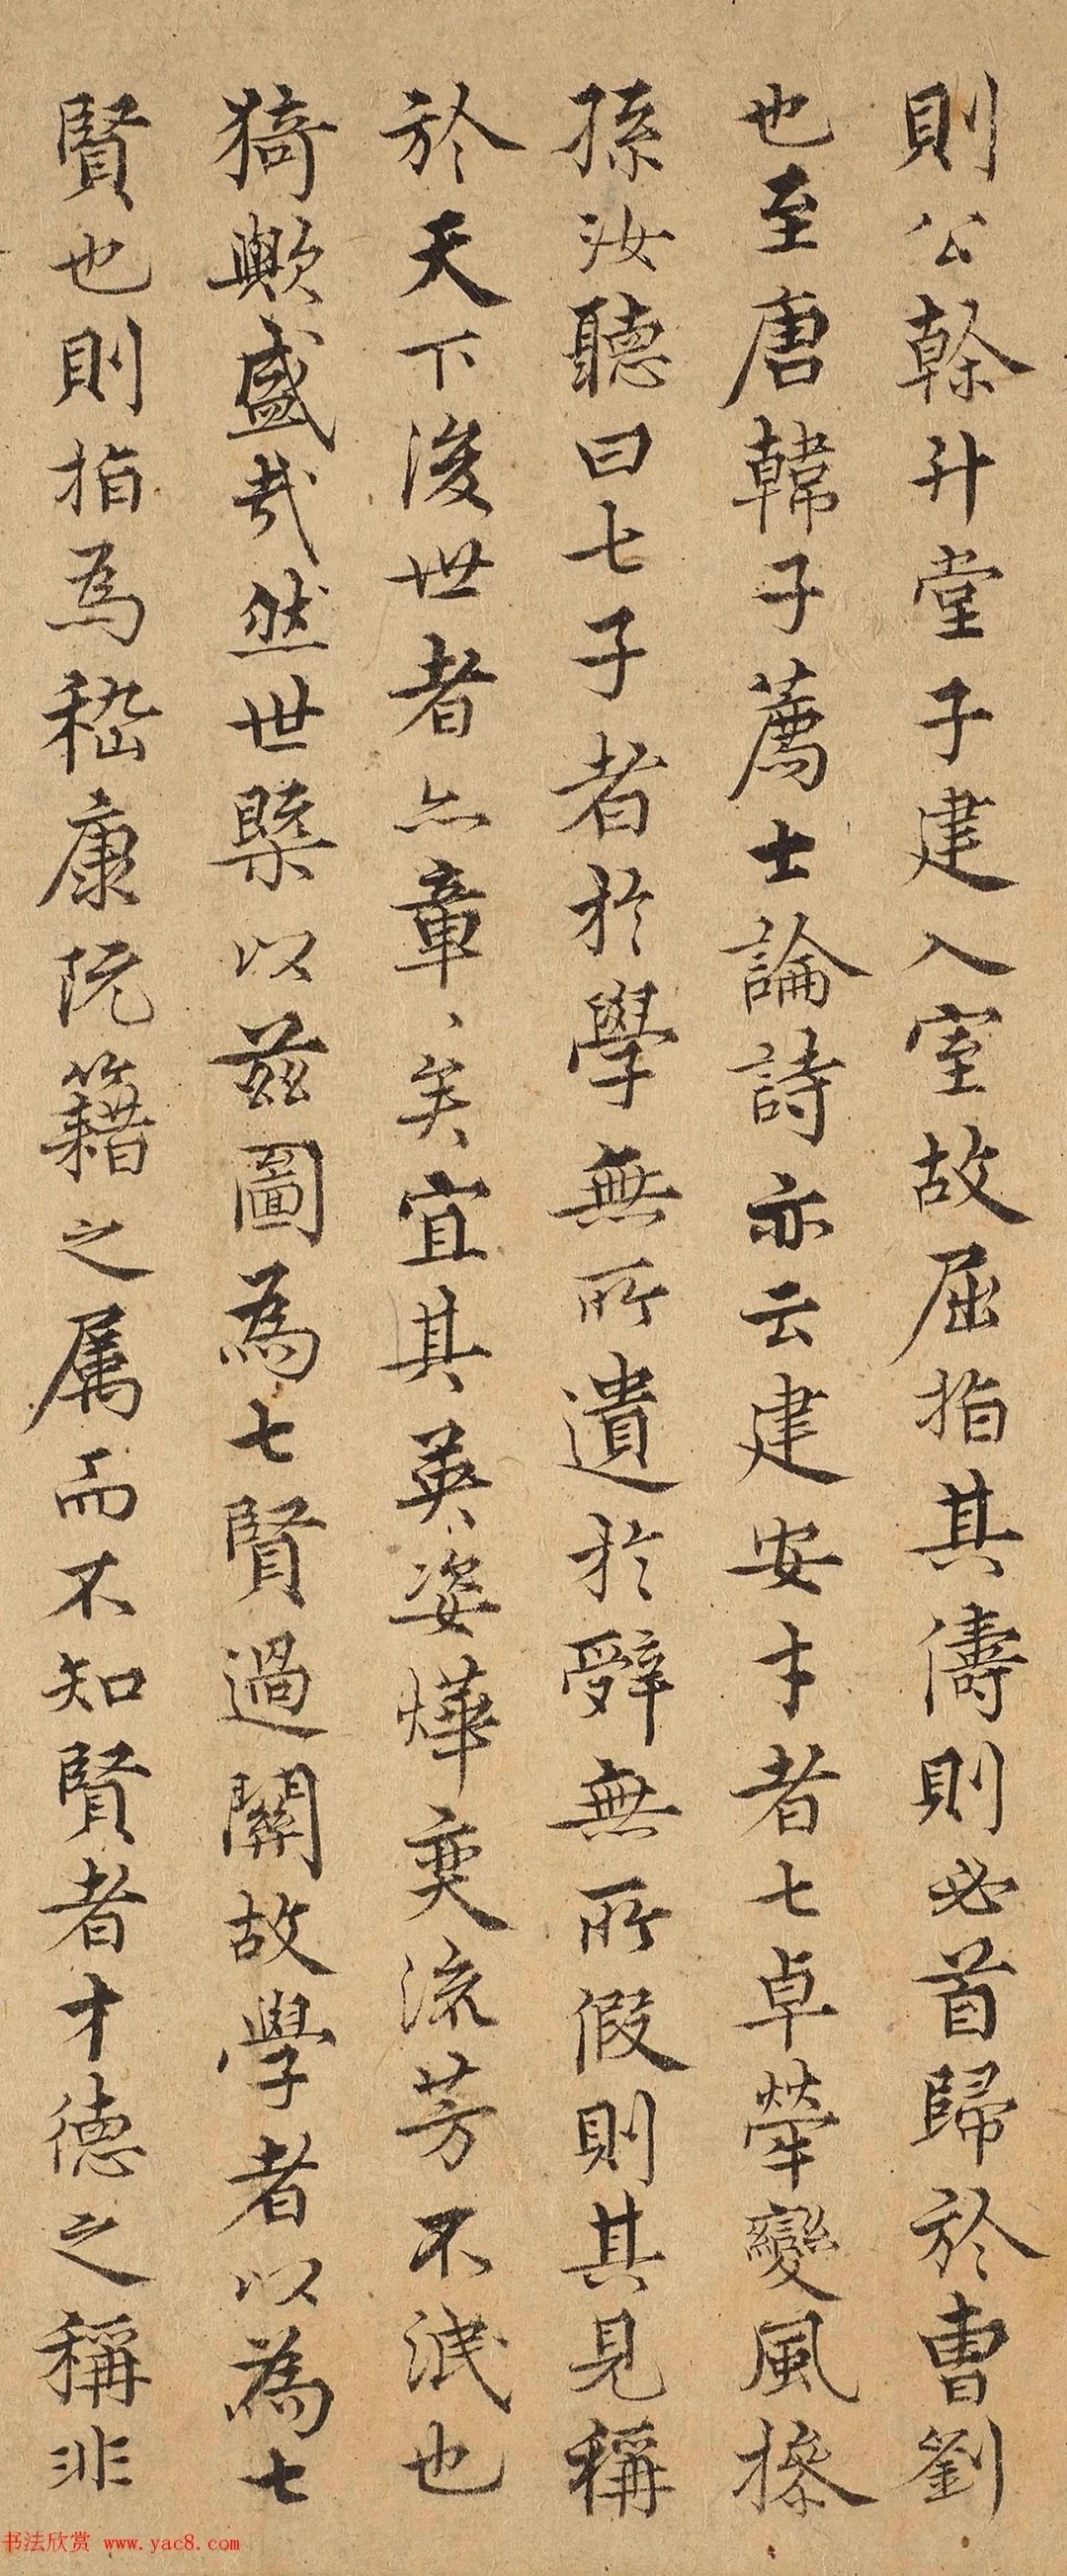 則公幹升堂子建入室故屈指其儔則必首歸於曹劉
也至唐韓子薦士論詩亦云建安才者七卓犖變風操
孫汝聽曰七子者於學無所遺於辭無所假則其見稱
於天下後世者亦章、矣宜其英姿燁奕流芳不泯也
猗歟盛哉然世槩以茲圖為七賢過關故學者以為七
賢也則指為嵇康阮籍之屬而不知賢者才德之稱非
书法欣赏 www.yac8.com